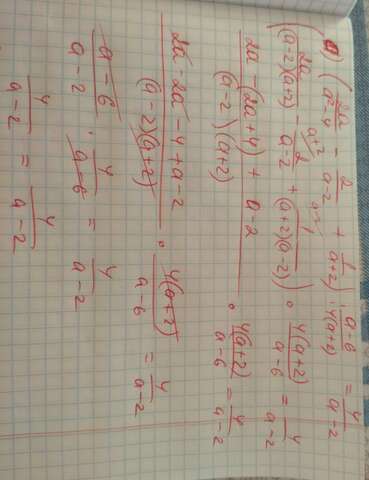 а) (2a/(a²-4) - 2/(a-2) + 1/(a+2)) : (a-6)/(4(a+2)) = 4/(a-2)
(2a/((a-2)(a+2)) - 2/(a-2) + 1/((a+2)(a-2))) · 4(a+2)/(a-6) = 4/(a-2)
(2a - (2a+4) + a-2)/((a-2)(a+2)) · 4(a+2)/(a-6) = 4/(a-2)
(2a - 2a - 4 + a - 2)/((a-2)(a+2)) · 4(a+2)/(a-6) = 4/(a-2)
(a-6)/(a-2) · 4/(a-6) = 4/(a-2)
4/(a-2) = 4/(a-2)